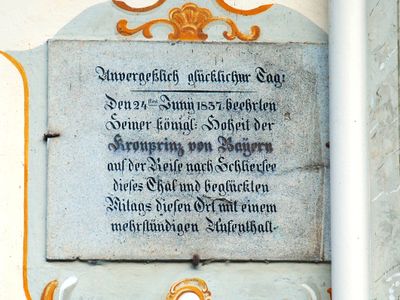 Unvergeßlich glücklicher Tag:
Den 24ten Juny 1837. beehrten
Seiner königl: Hoheit der
Kronprinz von Bayern
auf der Reise nach Schliersee
dieses Thal und beglückten
Mitags diesen Ort mit einem
mehrstündigen Aufenthalt.